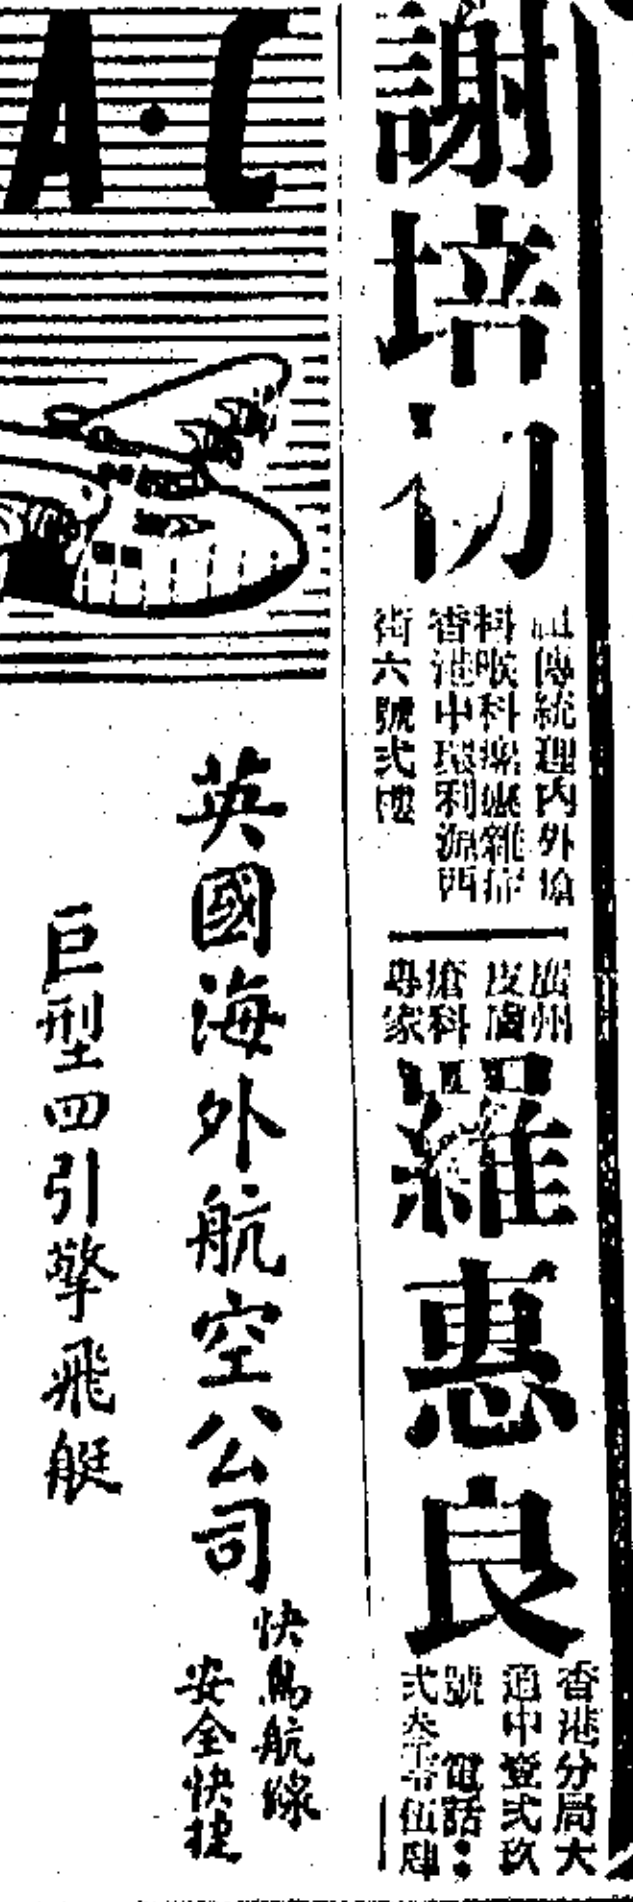 謝培初
傳統理內外
科喉科雜症
香港中環利源西
街六號弍樓
廣州
皮膚
瘡科
專家
羅惠良
香港分局大
道中壹弍玖
號 電話:
A·C
英國海外航空公司
快馬航線
安全快捷
巨型四引擎飛艇